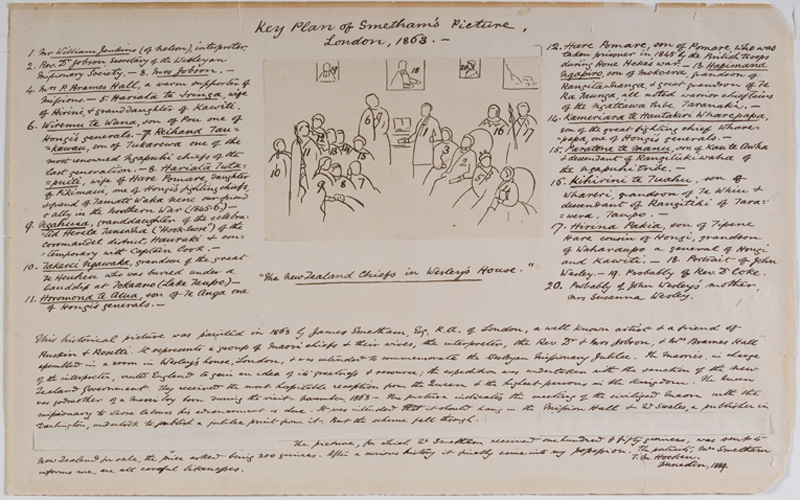 Key Plan of Smetham's Picture,
London, 1863. —
1. Mr William Jenkins (of Nelson), interpreter.
2. Rev. Dr Jobson, Secretary of the Wesleyan
Missionary Society. — 3. Mrs Jobson. —
4. Mrs P. Brames Hall, a warm supporter of
Missions. — 5. Hariata te Iringa, wife
of Hirini, & granddaughter of Kawiti. —
6. Wiremu te Wana, son of Pou one of
Hongi's generals. — 7. Reihana Tau-
=kawau, son of Tukarewa one of the
most renowned Ngapuhi chiefs of the
last generation. — 8. Hariata Tuta=
=puiti, wife of Hare Pomare, daughter
of Pikimaui, one of Hongi's fighting chiefs,
& friend of Tamati Waka Nene our friend
& ally in the Northern War (1845-6). —
9. Ngahuia, granddaughter of the celebra-
ted Herete Taniwha ('Hook-nose') of the
Coromandel district, Hauraki & con-
-temporary with Captain Cook. —
10. Takarei Ngawaka, grandson of the great
Te Heuheu who was buried under a
landslip at Tokaano (Lake Taupo) —
11. Horomona te Atua, son of Te Anga one
of Hongi's generals. —
19
18
20
10
11
9
8
7
6
12
13
14
1
3
2
5
4
16
17
"The New Zealand Chiefs in Wesley's House."
12. Hare Pomare, son of Pomare who was
taken prisoner in 1845 by the British troops
during Hone Heke's war. — 13. Hapimana
Ngapiro, son of Mokoera, grandson of
Rangitawhanga, & great grandson of Te
Ra Taunga, all noted warrior chieftains
of the Ngatiawa tribe, Taranaki. —
14. Kameriara te Hautakiri Wharepapa,
son of the great fighting chief Whare=
=papa, one of Hongi's generals. —
15. Paratene te Manu, son of Kau te Awha
& descendant of Rangituki waha of
the Ngapuhi tribe. —
16. Kihirini te Tuahu, son of
Whareri, grandson of Te Whiu &
descendant of Rangitiki of Tara=
=wera, Taupo. —
17. Hirini Pakia, son of Tipene
Hare cousin of Hongi, grandson
of Waharaupo a general of Hongi
and Kawiti. — 18. Portrait of John
Wesley. — 19. Probably of Rev. Dr Coke.
20. Probably of John Wesley's mother,
Mrs Susanna Wesley.
This historical picture was painted in 1863 by James Smetham, Esq, R.A. of London, a well known artist & a friend of
Ruskin & Rosetti. It represents a group of Maori chiefs & their wives, the interpreter, the Rev. Dr & Mrs Jobson, & Mrs Brames Hall
assembled in a room in Wesley's house, London, & was intended to commemorate the Wesleyan Missionary Jubilee. The Maoris, in charge
of the interpreter, visited England to gain an idea of its greatness & resources; the expedition was undertaken with the sanction of the New
Zealand Government. They received the most hospitable reception from the Queen & the highest persons in the kingdom. The Queen
was godmother of a Maori boy born during the visit November, 1863 — The picture indicates the meeting of the civilized Maori with the
missionary to whose labours his advancement is due. It was intended that it should hang in the Mission Hall & Dr Swales, a publisher in
Darlington, undertook to publish a jubilee print from it. But the scheme fell through. —
The picture, for which Mr Smetham received one hundred & fifty guineas, was sent to
New Zealand for sale, the price asked being 200 guineas. After a curious history it finally came into my possession. The portraits, Mrs Smetham
informs me, are all careful likenesses.
T. M. Hocken.
Dunedin, 1889.